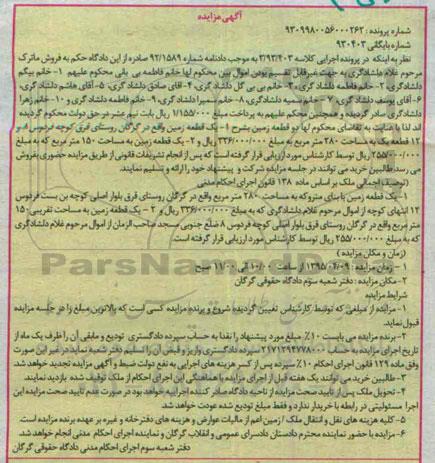 آگهی مزایده
شماره پرونده : ۹۳۰۹۹۸۰۰۵۶۰۰۰۲۶۲
شماره بایگانی ۹۳۰۴۰۳
نظر به اینکه در پرونده اجرایی کلاسه ۳/۹۳/۴۰۳ به موجب دادنامه شماره ۹۲/۱۵۸۹ صادره از این دادگاه حکم به فروش ماترک
مرحوم غلام دلشادگری به جهت غیرقابل تقسیم بودن اموال بین محکوم لها خانم فاطمه بی بالی محکوم علیهم ۱- خانم بیگم
دلشادگری ۲- خانم فاطمه دلشادگری ۳- خانم بی بی گل دلشادگری ۴- آقای صادق دلشادگری ۵- آقای هاشم دلشادگری
۶- آقای یوسف دلشادگری ۷- خانم سمیه دلشادگری ۸- خانم سمیرا دلشادگری ۹- خانم فاطمه دلشادگری و ۱۰- خانم زهرا
دلشادگری صادر گردیده و همچنین محکم علیهم به پرداخت مبلغ ۱/۱۵۵/۰۰۰ ریال بابت نیم عشر در حق دولت محکوم گردیده
اند لذا با عنایت به تقاضای محکوم لها دو قطعه زمین بشرح ۱- یک قطعه زمین واقع در گرگان روستای قرق کوچه فردوس
۱۲ قطعه یک به مساحت ۲۸۰ متر مربع به مبلغ ۳۳۶/۰۰۰/۰۰۰ ریال و ۲- یک قطعه زمین به مساحت ۱۵۰ متر مربع که به مبلغ
۲۵۵/۰۰۰/۰۰۰ ریال توسط کارشناس مورد ارزیابی قرار گرفته است که پس از انجام تشریفات قانونی از طریق مزایده حضوری بفروش
می رسد طالبین خرید می توانند در جلسه مزایده شرکت و پیشنهاد خود را ارائه و تسلیم نمایند.
(توصیف اجمالی ملک بر اساس ماده ۱۳۸ قانون اجرای احکام مدنی
۱- یک قطعه زمین با بنای متروکه به مساحت ۲۸۰ متر مربع واقع در گرگان روستای قرق بلوار اصلی کوچه بن بست فردوس
۱۲ انتهای کوچه از اموال مرحوم غلام دلشادگری که به مبلغ ۳۳۶/۰۰۰/۰۰۰ ریال و ۲- یک قطعه زمین به مساحت تقریبی ۱۵۰
متر مربع واقع در گرگان روستای قرق بلوار اصلی کوچه فردوس ۸ ضلع جنوبی مسجد صاحب الزمان از اموال مرحوم غلام دلشادگری
که به مبلغ ۲۵۵/۰۰۰/۰۰۰ ریال توسط کارشناس مورد ارزیابی قرار گرفته است.
(زمان و مکان مزایده)
۱- زمان مزایده : ۱۳۹۵/۰۴/۰۹ از ساعت ۱۰/۰۰ الی ۱۱/۰۰ صبح
۲- مکان مزایده : دفتر شعبه سوم دادگاه حقوقی گرگان
شرایط مزایده
۱- مزایده از مبلغی که توسط کارشناس تعیین گردیده شروع و برنده مزایده کسی است که بالاترین مبلغ را در جلسه مزایده
قبول نماید.
۲- برنده مزایده می بایست ۱۰٪ مبلغ مورد پیشنهاد را نقدا به حساب سپرده دادگستری تودیع و مابقی آن را ظرف یک ماه از
تاریخ اجرای مزایده به حساب ۲۱۷۱۲۹۴۷۷۸۰۰۰ سپرده دادگستری واریز و فیش آن را تسلیم دفتر شعبه نماید در غیر این صورت
وفق ماده ۱۲۹ قانون اجرای احکام ۱۰٪ سپرده پس از کسر هزینه های اجرایی به نفع دولت ضبط و آگهی مزایده تجدید خواهد شد.
۳- طالبین خرید می توانند یک هفته قبل از اجرای مزایده با هماهنگی این اجرای احکام از ملک توقیف شده بازدید نمایند.
۴- تحویل ملک پس از تایید صحت مزایده از ناحیه دادگاه صادر کننده اجراییه خواهد بود در صورت عدم تایید صحت مزایده این
اجرا مسئولیتی در رابطه با خریدار ندارد و فقط مبلغ تودیع شده عودت خواهد شد.
۵- کلیه هزینه های نقل و انتقال ملک / زمین اعم از مالیات عوارض و هزینه های دفترخانه و غیره بر عهده برنده مزایده است.
۶- مزایده با حضور نماینده محترم دادستان دادسرای عمومی و انقلاب گرگان و نماینده اجرای احکام مدنی انجام خواهد شد.
دفتر شعبه سوم اجرای احکام مدنی دادگاه حقوقی گرگان
ParsNamadData